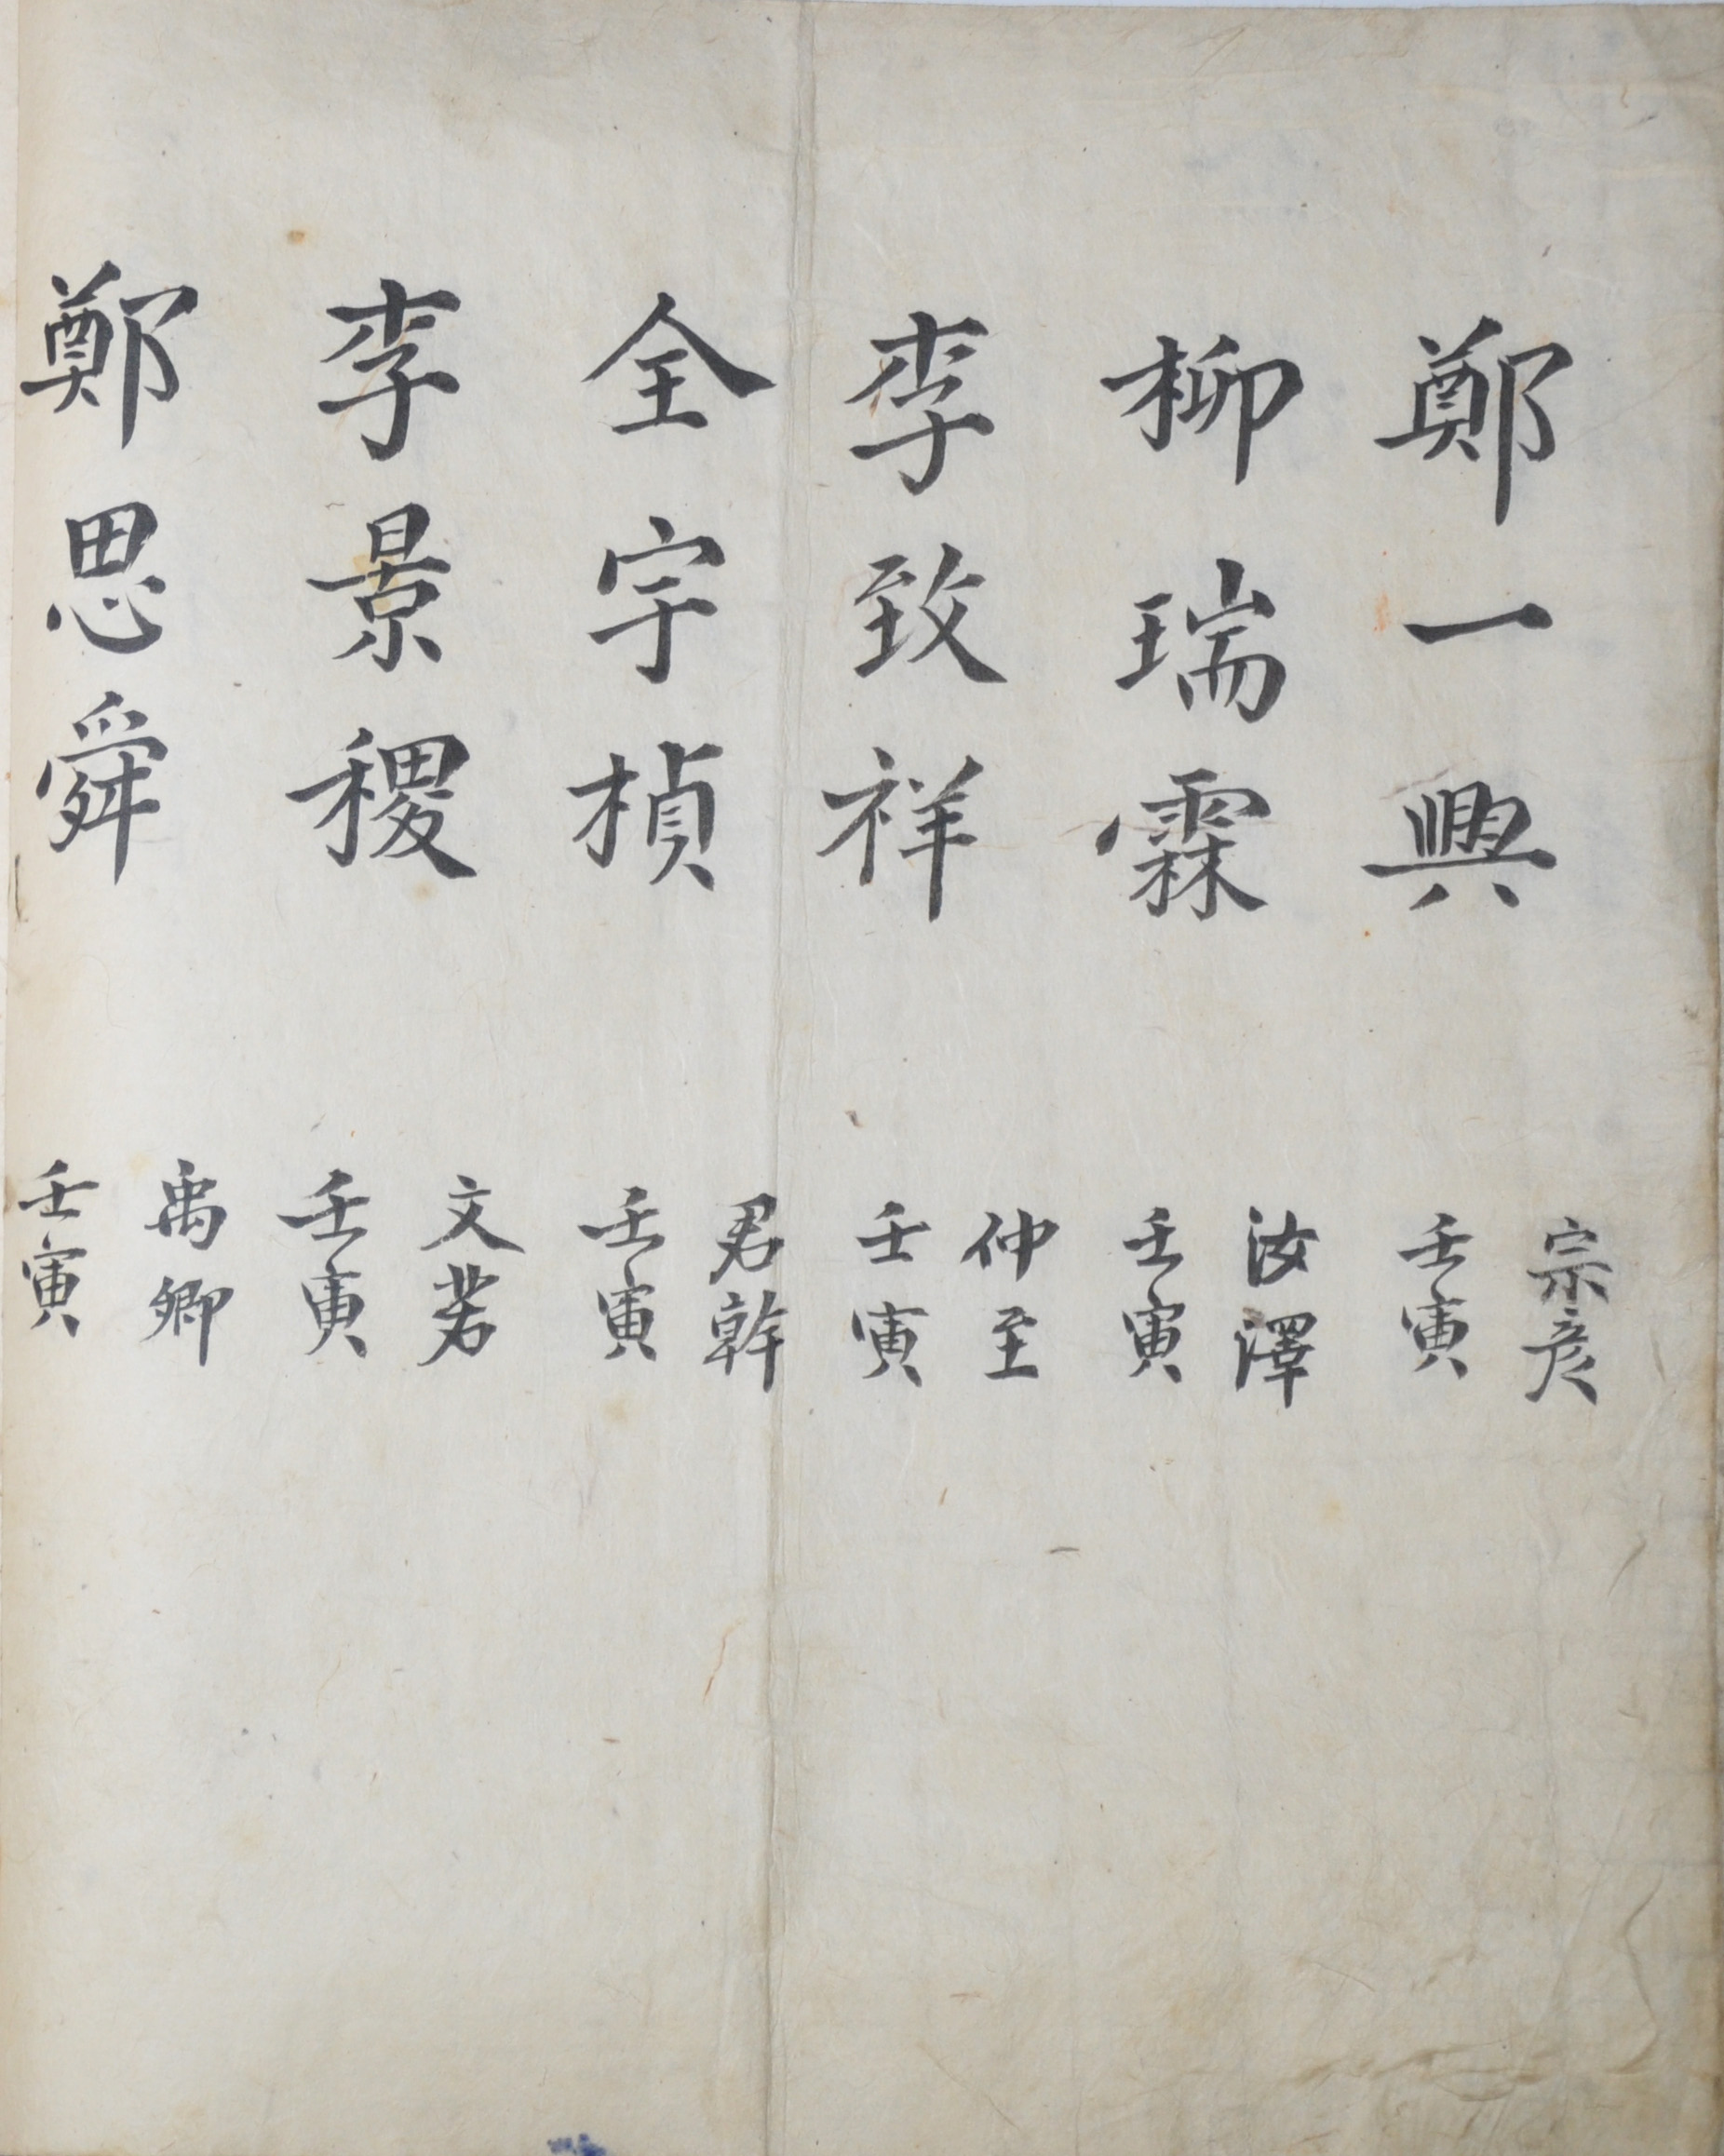 鄭一興
宗彦
壬寅
柳瑞霖
汝澤
壬寅
李致祥
仲至
壬寅
全宇楨
君幹
壬寅
李景稷
文若
壬寅
鄭思舜
禹卿
壬寅